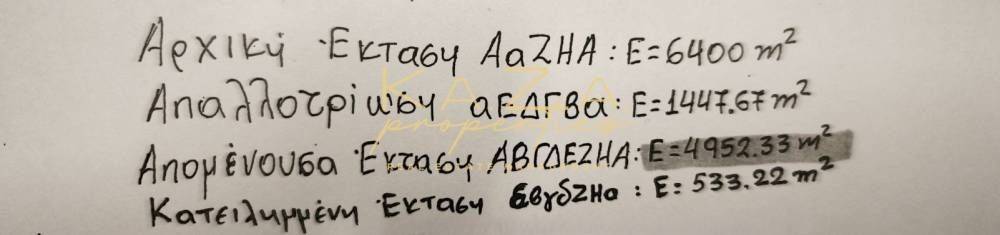 Αρχική Έκταση ΑαΖΗΑ: Ε=6400 m²
Απαλλοτρίωση αΕΔΓΒα: Ε=1447.67 m²
Απομένουσα Έκταση ΑΒΓΔΕΖΗΑ: Ε=4952.33 m²
Κατειλημμένη Έκταση εβγδΖΗα: Ε= 533.22 m²
KAZA
properties